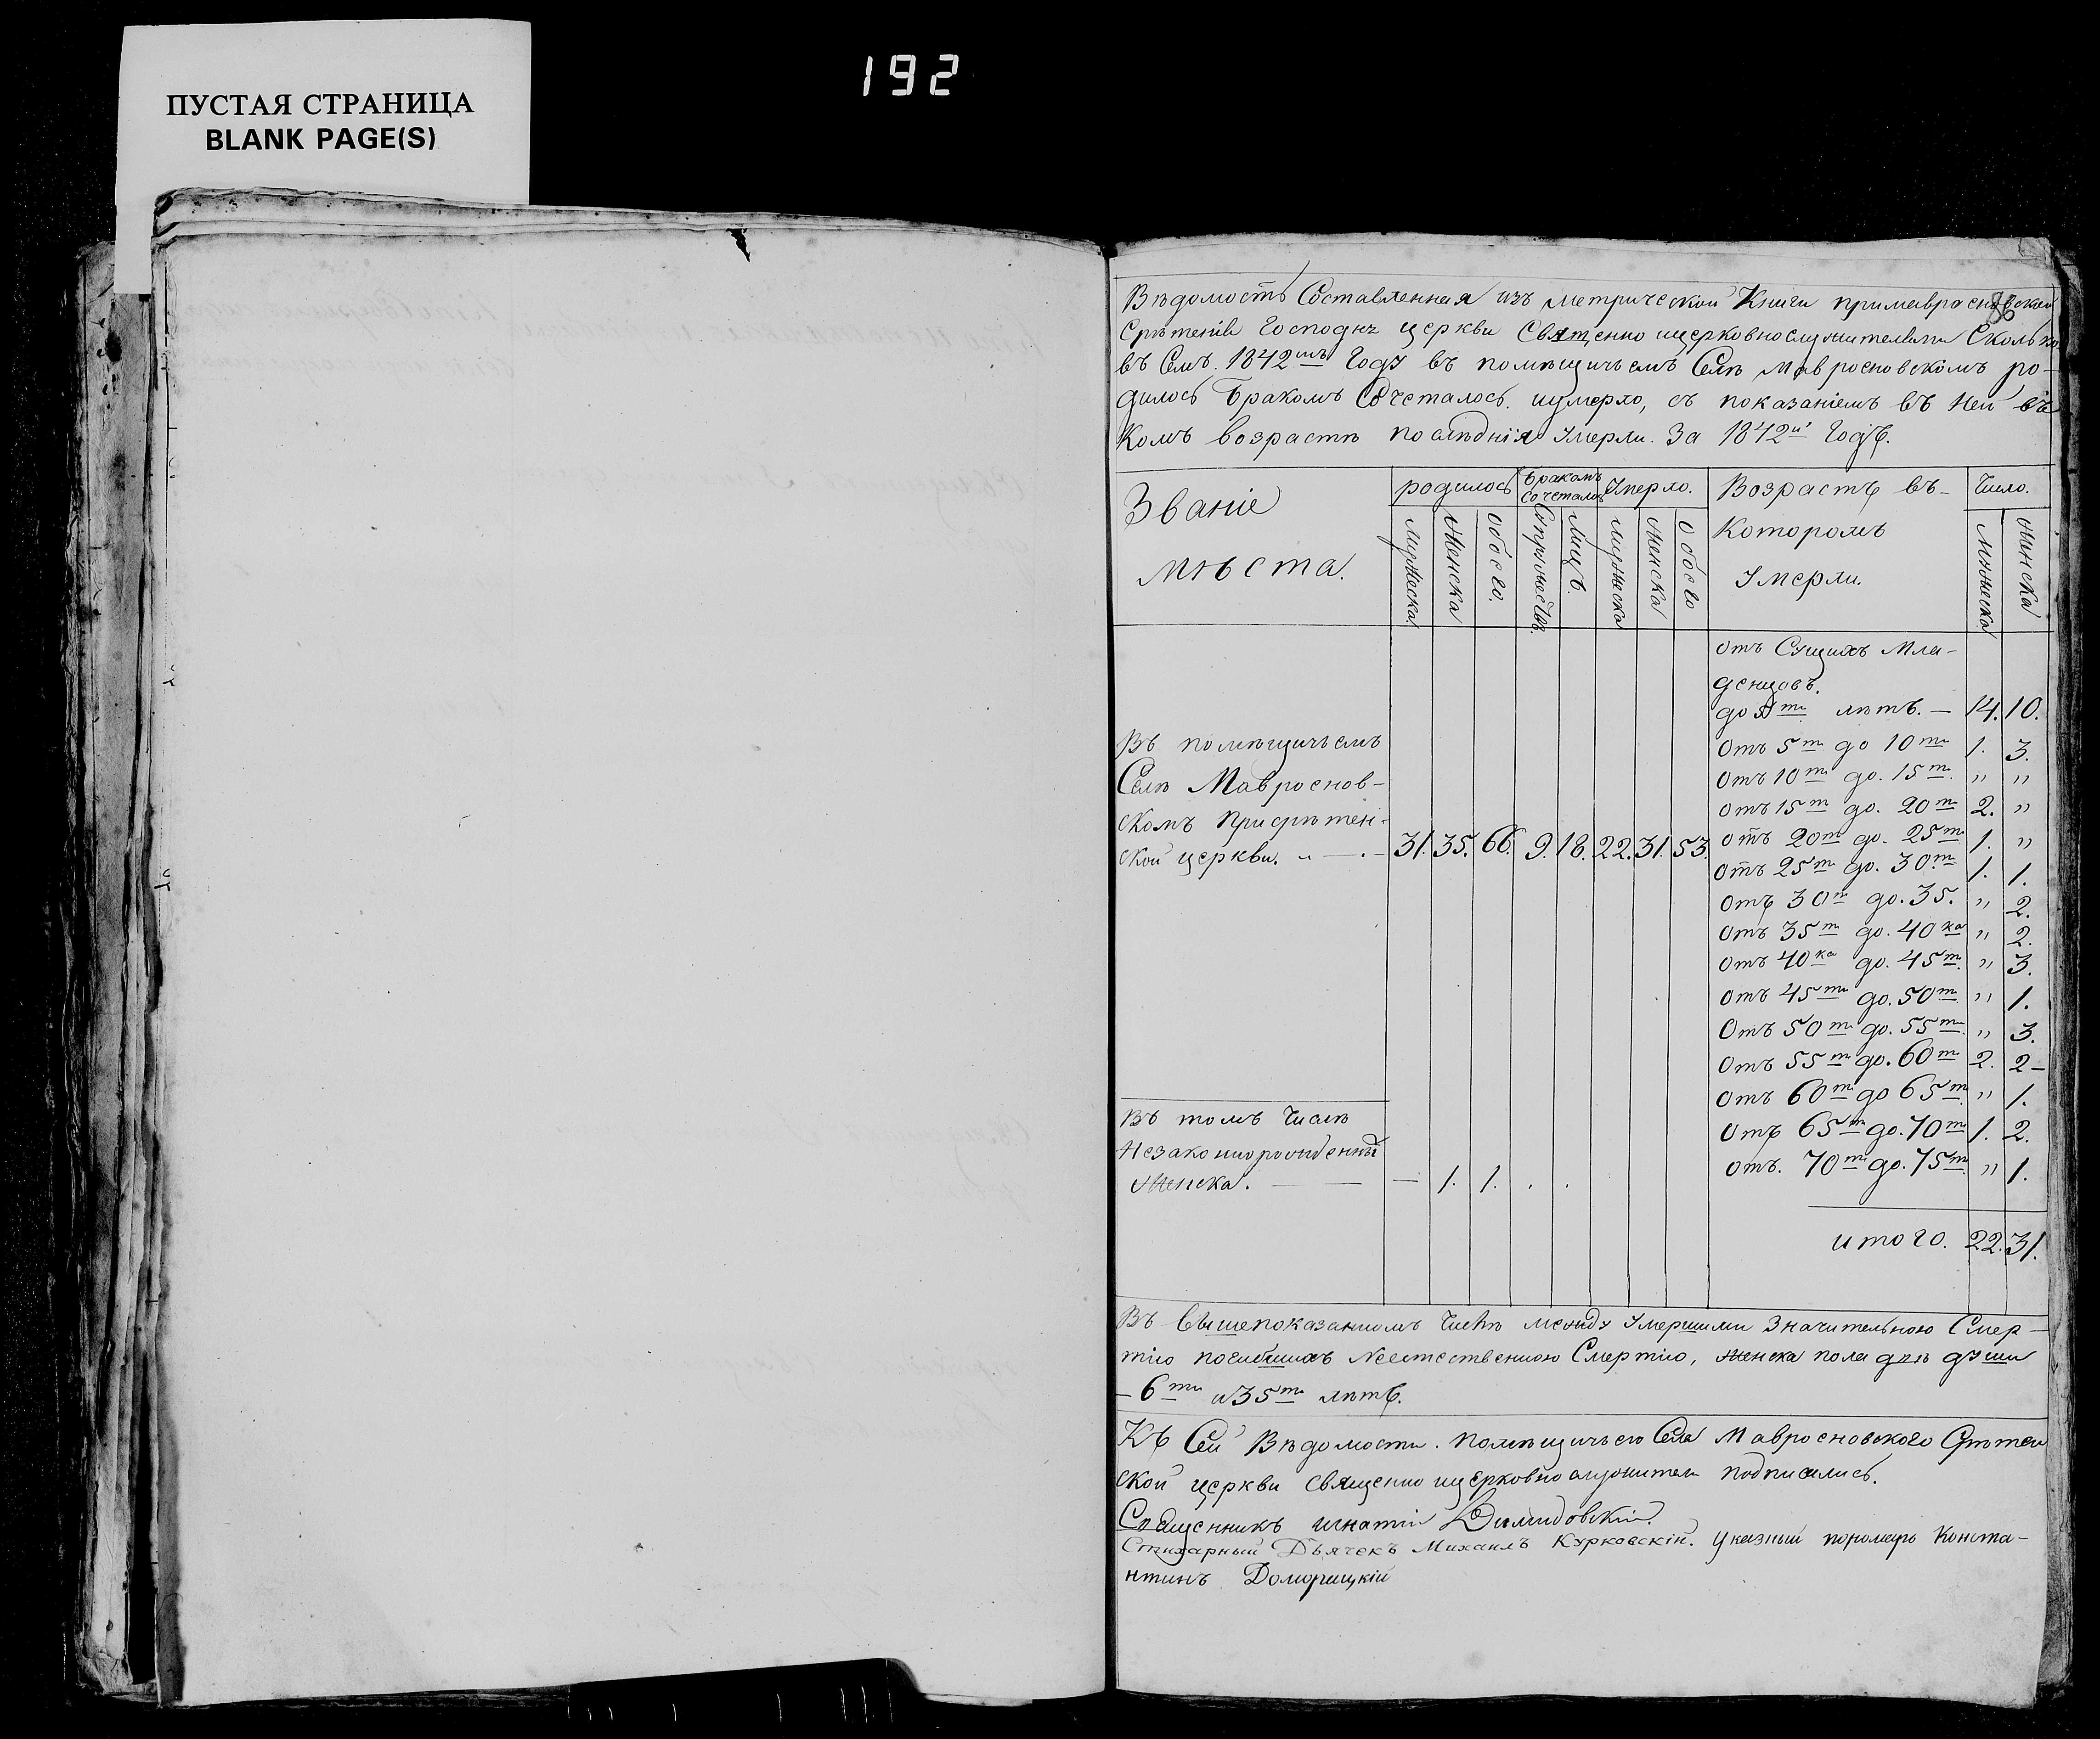 192
ПУСТАЯ СТРАНИЦА
BLANK PAGE(S)
Вѣдомость Составленная изъ метрической Книги
Срѣтенія Господня церкви Священно ицерковнослужителями Сколько
въ Семъ 1842мъ Году въ помѣщичьемъ Селѣ Мавросновскомъ ро-
дилось Бракомъ Сочеталось иумерло, съ показаніемъ въ Ней въ
Комъ возрастѣ послѣднія Умерли. За 1842й Годъ.
Званіе мѣста. родилось Бракомъ Сочеталось Умерло. Возрастъ въ- Число.
Которомъ
Умерли.
мужеска Женска обоего. Супружествъ. Лицъ. мужеска женска обоего мужеска женска
отъ Сущихъ Мла-
денцовъ.
до 5ти лѣтъ. — 14. 10.
Отъ 5ти до 10ти 1. 3.
Отъ 10ти до. 15ти. " "
Отъ 15ти до. 20ти 2. "
отъ 20ти до. 25ти 1. "
отъ 25ти до. 30ти 1. 1.
отъ 30ти до. 35. " 2.
отъ 35ти до. 40ка " 2.
отъ 40ка до. 45ти. " 3.
отъ 45ти до. 50ти. " 1.
Отъ 50ти до. 55ти. " 3.
Отъ 55ти до. 60ти 2. 2-
отъ 60ти до 65ти. " 1.
Отъ 65ти до. 70ти 1. 2.
отъ. 70ти до. 75ти. " 1.
итого. 22. 31.
Въ помѣщичьемъ
Селѣ Мавроснов-
скомъ при срѣтен-
ской церкви. 31. 35. 66. 9. 18. 22. 31. 53.
Въ томъ Числѣ
Незаконнорожденны
Женска. — — 1. 1. . .
Въ вышепоказанномъ Числѣ между Умершими Значительною Смер-
тію погибшихъ Неестественною Смертію, женска пола двѣ души
- 6ти и 35ти лѣтъ.
Къ Сей Вѣдомости. помѣщичьего Села Мавросновского Срѣтен
ской церкви священно ицерковно служители подписались.
Священникъ игнатій
Стихарный Дьячекъ Михаилъ Курковскій. Указный пономарь Конста-
нтинъ Доморицкій